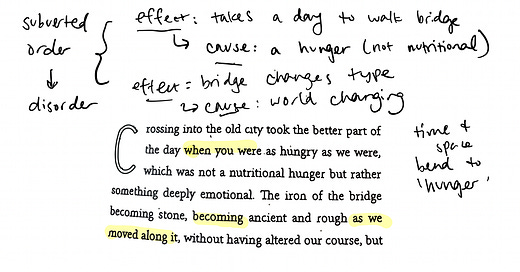 subverted order ↓ disorder
effect: takes a day to walk bridge
↳ cause: a hunger (not nutritional)
effect: bridge changes type
↳ cause: world changing
Crossing into the old city took the better part of
the day when you were as hungry as we were,
which was not a nutritional hunger but rather
something deeply emotional. The iron of the bridge
becoming stone, becoming ancient and rough as we
moved along it, without having altered our course, but
time &
space
bend to
'hunger'